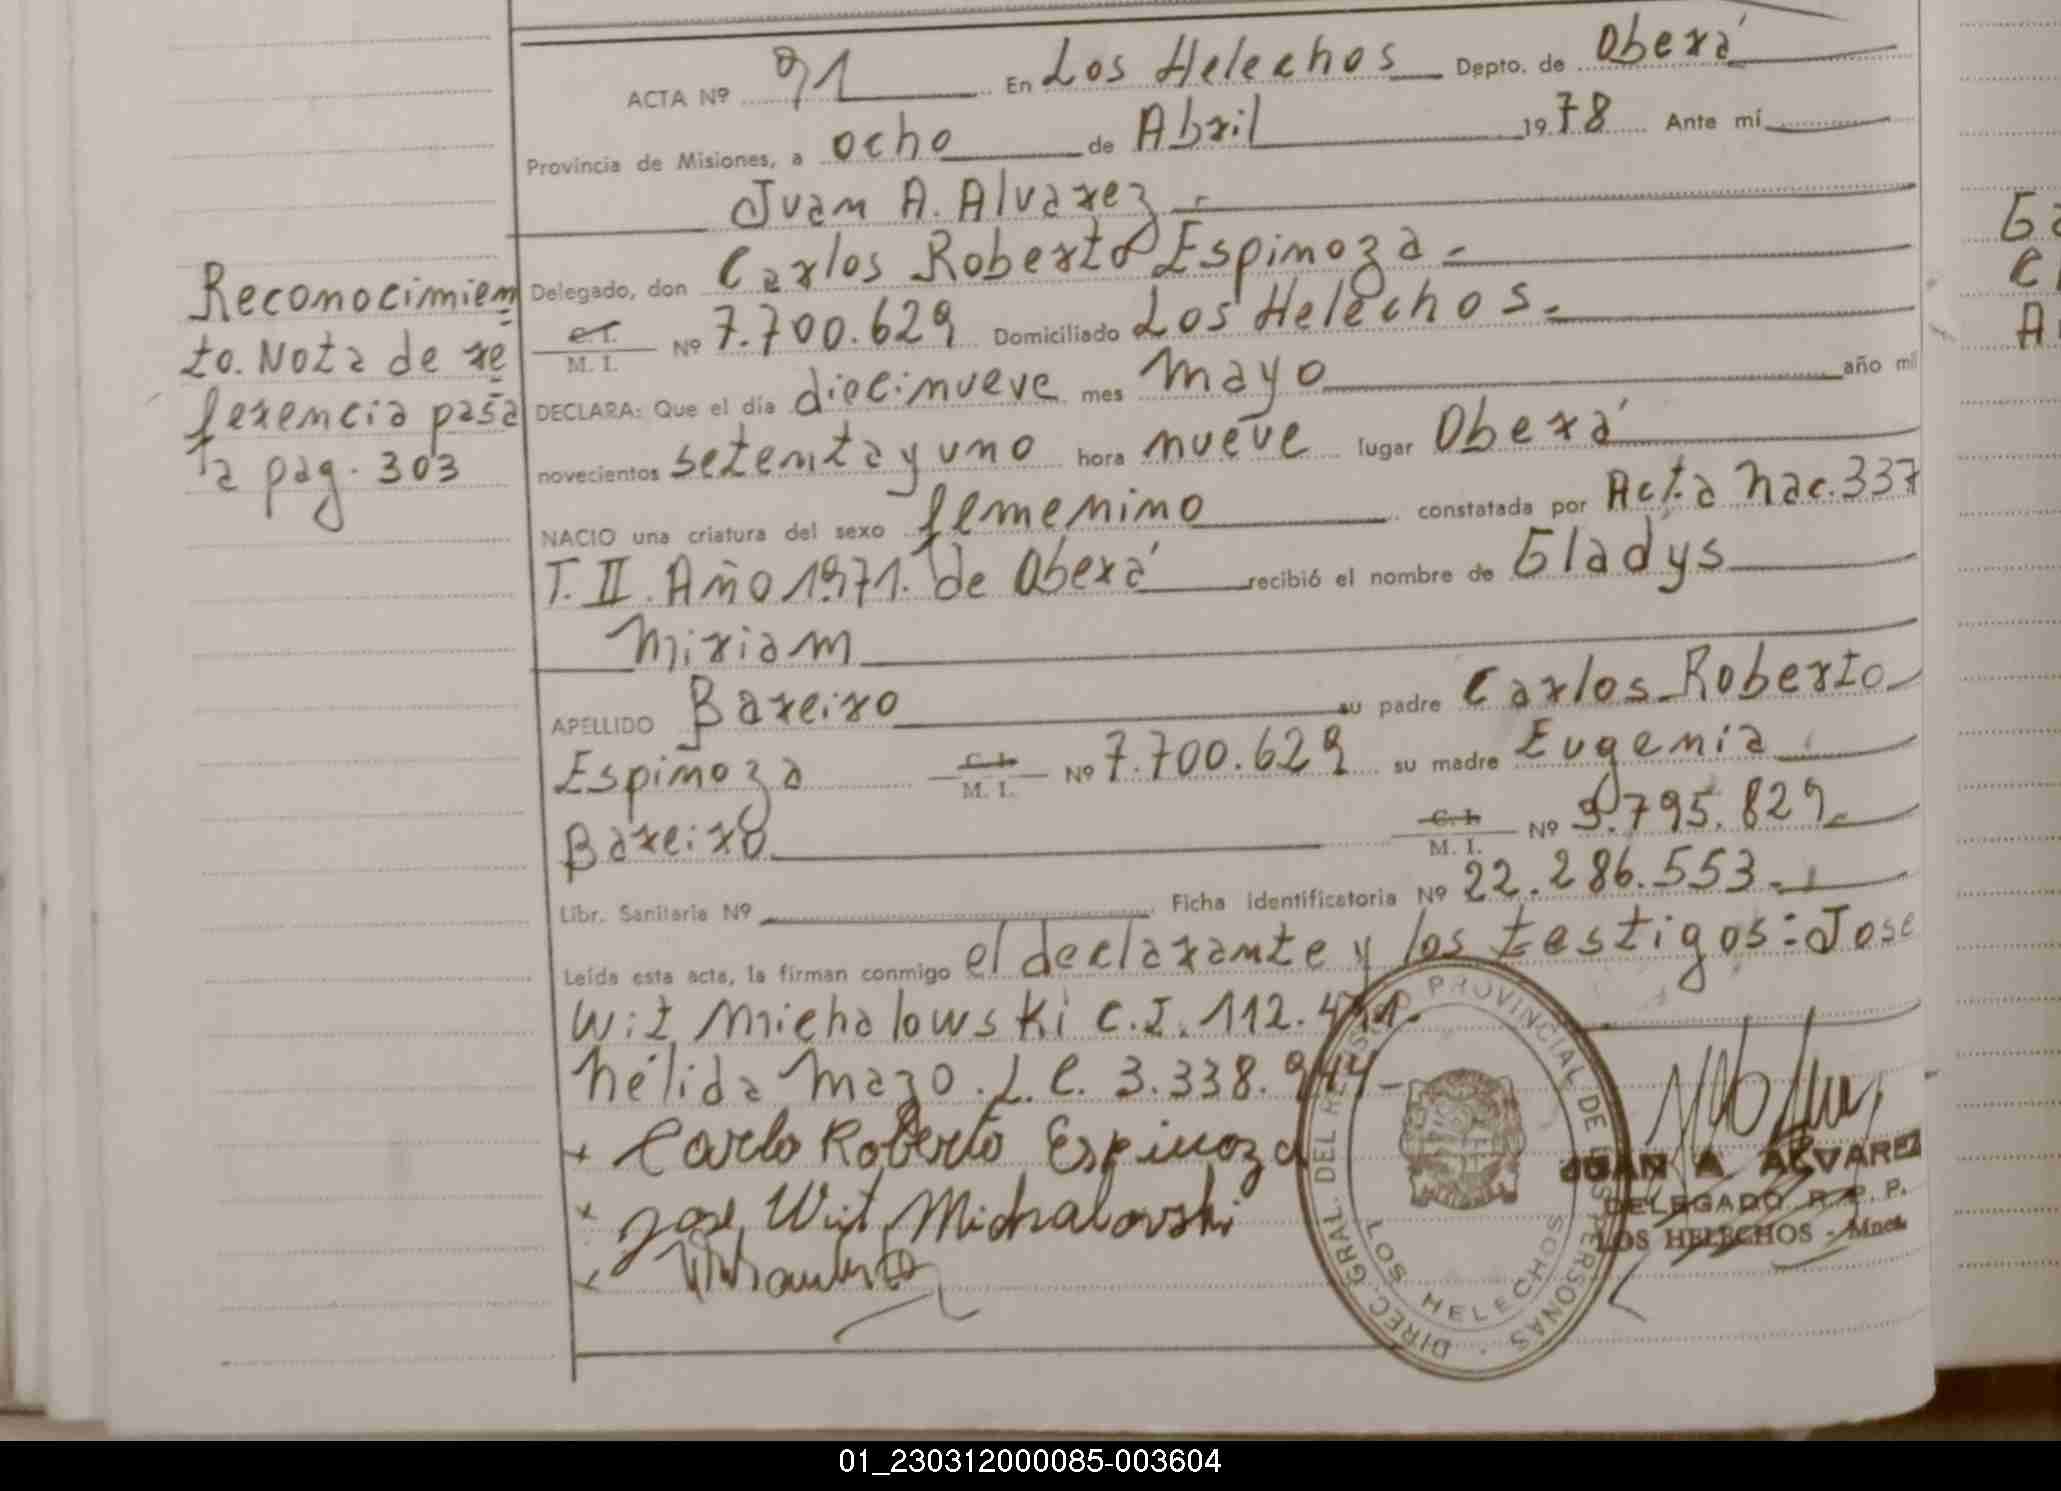 ACTA Nº 91 En Los Helechos Depto. de Oberá
Provincia de Misiones, a ocho de Abril 1978 Ante mí
Juan A. Alvarez.-
Delegado, don Carlos Roberto Espinoza.-
C. I.
M. I. Nº 7.700.629 Domiciliado Los Helechos.-
DECLARA: Que el día diecinueve mes mayo año mil
novecientos setenta y uno hora nueve lugar Oberá
NACIO una criatura del sexo femenino constatada por Acta Nac. 337
T. II. Año 1971. de Oberá recibió el nombre de Gladys
Miriam
APELLIDO Bareiro su padre Carlos Roberto
Espinoza C. I. M. I. Nº 7.700.629 su madre Eugenia
Bareiro C. I. M. I. Nº 9.795.829.
Libr. Sanitaria Nº Ficha identificatoria Nº 22.286.553.-
Leída esta acta, la firman conmigo el declarante y los testigos: Jose
Wit Michalowski C.I. 112.
Nélida Mazo. L.C. 3.338.944-
Carlo Roberto Espinoza
Jose Wit Michalovski
Reconocimien
to. Nota de re
ferencia pasa
a pag. 303
DIREC. GRAL. DEL REGISTRO PROVINCIAL DE LAS PERSONAS
LOS HELECHOS
JUAN A. ALVAREZ
DELEGADO R. P. P.
LOS HELECHOS - Mnes.
Ga
C
A
01_230312000085-003604